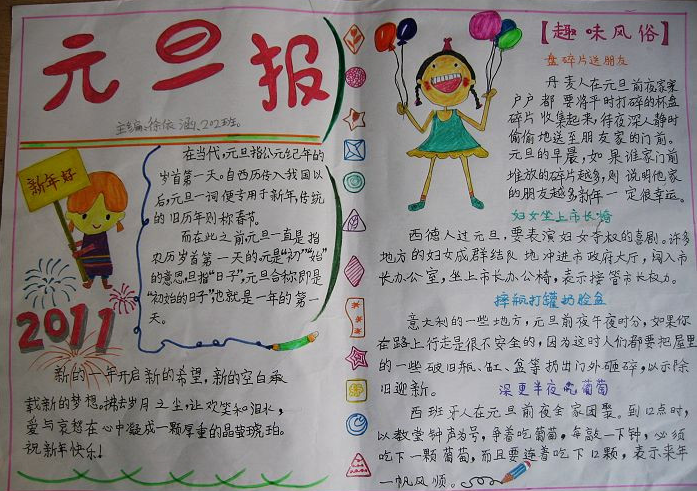 元旦报
主编:徐依涵、202班。
新年好
2011
在当代,元旦指公元纪年的
岁首第一天。自西历传入我国以
后,元旦一词便专用于新年,传统
的旧历年则称春节。
而在此之前,元旦一直是指
农历岁首第一天的。元是“初”“始”
的意思,旦指“日子”,元旦合称即是
“初始的日子”,也就是一年的第一
天。
新的一年开启新的希望,新的空白承
载新的梦想。拂去岁月之尘,让欢笑和泪水,
爱与哀愁在心中凝成一颗厚重的晶莹琥珀。
祝新年快乐!
【趣味风俗】
盘碎片送朋友
丹麦人在元旦前夜家家
户户都要将平时打碎的杯盘
碎片收集起来,待夜深人静时
偷偷地送至朋友家的门前。
元旦的早晨,如果谁家门前
堆放的碎片越多,则说明他家
的朋友越多新年一定很幸运。
妇女坐上市长椅
西德人过元旦,要表演妇女夺权的喜剧。许多
地方的妇女成群结队地冲进市政府大厅,闯入市
长办公室,坐上市长办公椅,表示接管市长权力。
摔瓶打罐扔脸盆
意大利的一些地方,元旦前夜午夜时分,如果你
在路上行走是很不安全的,因为这时人们都要把屋里
的一些破旧瓶、缸、盆等扔出门外砸碎,以示除
旧迎新。
深更半夜吃葡萄
西班牙人在元旦前夜全家团聚。到12点时,
以教堂钟声为号,争着吃葡萄,每敲一下钟,必须
吃下一颗葡萄,而且要连着吃下12颗,表示来年
一帆风顺。